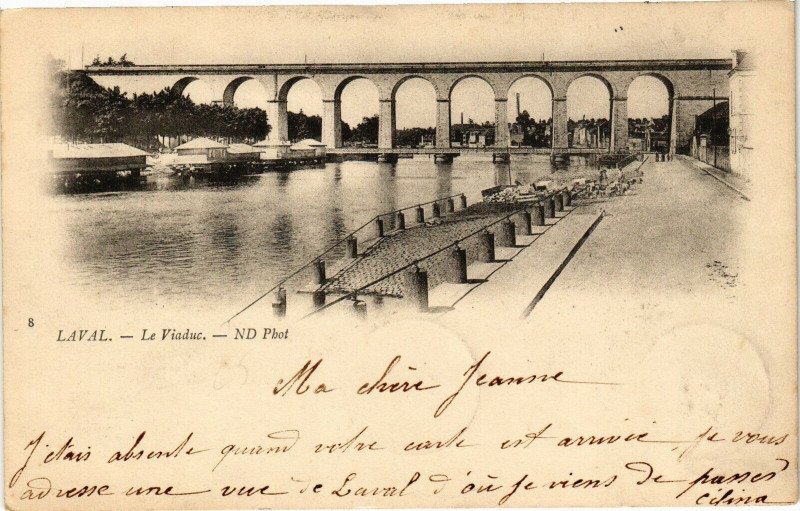 8
LAVAL. — Le Viaduc. — ND Phot
Ma chère Jeanne
J'etais absente quand votre carte est arrivée, je vous
adresse une vue de Laval d'où je viens de passer
Célina